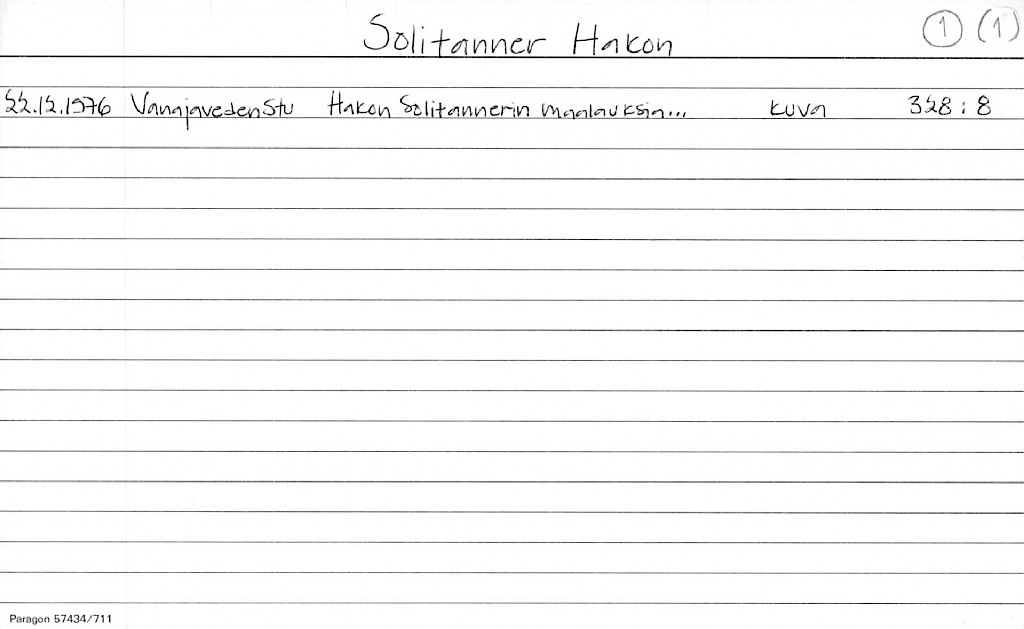 Solitanner Hakon 1 (1)
22.12.1976 VanajavedenStu Hakon Solitannerin maalauksia... kuva 328:8
Paragon 57434/711